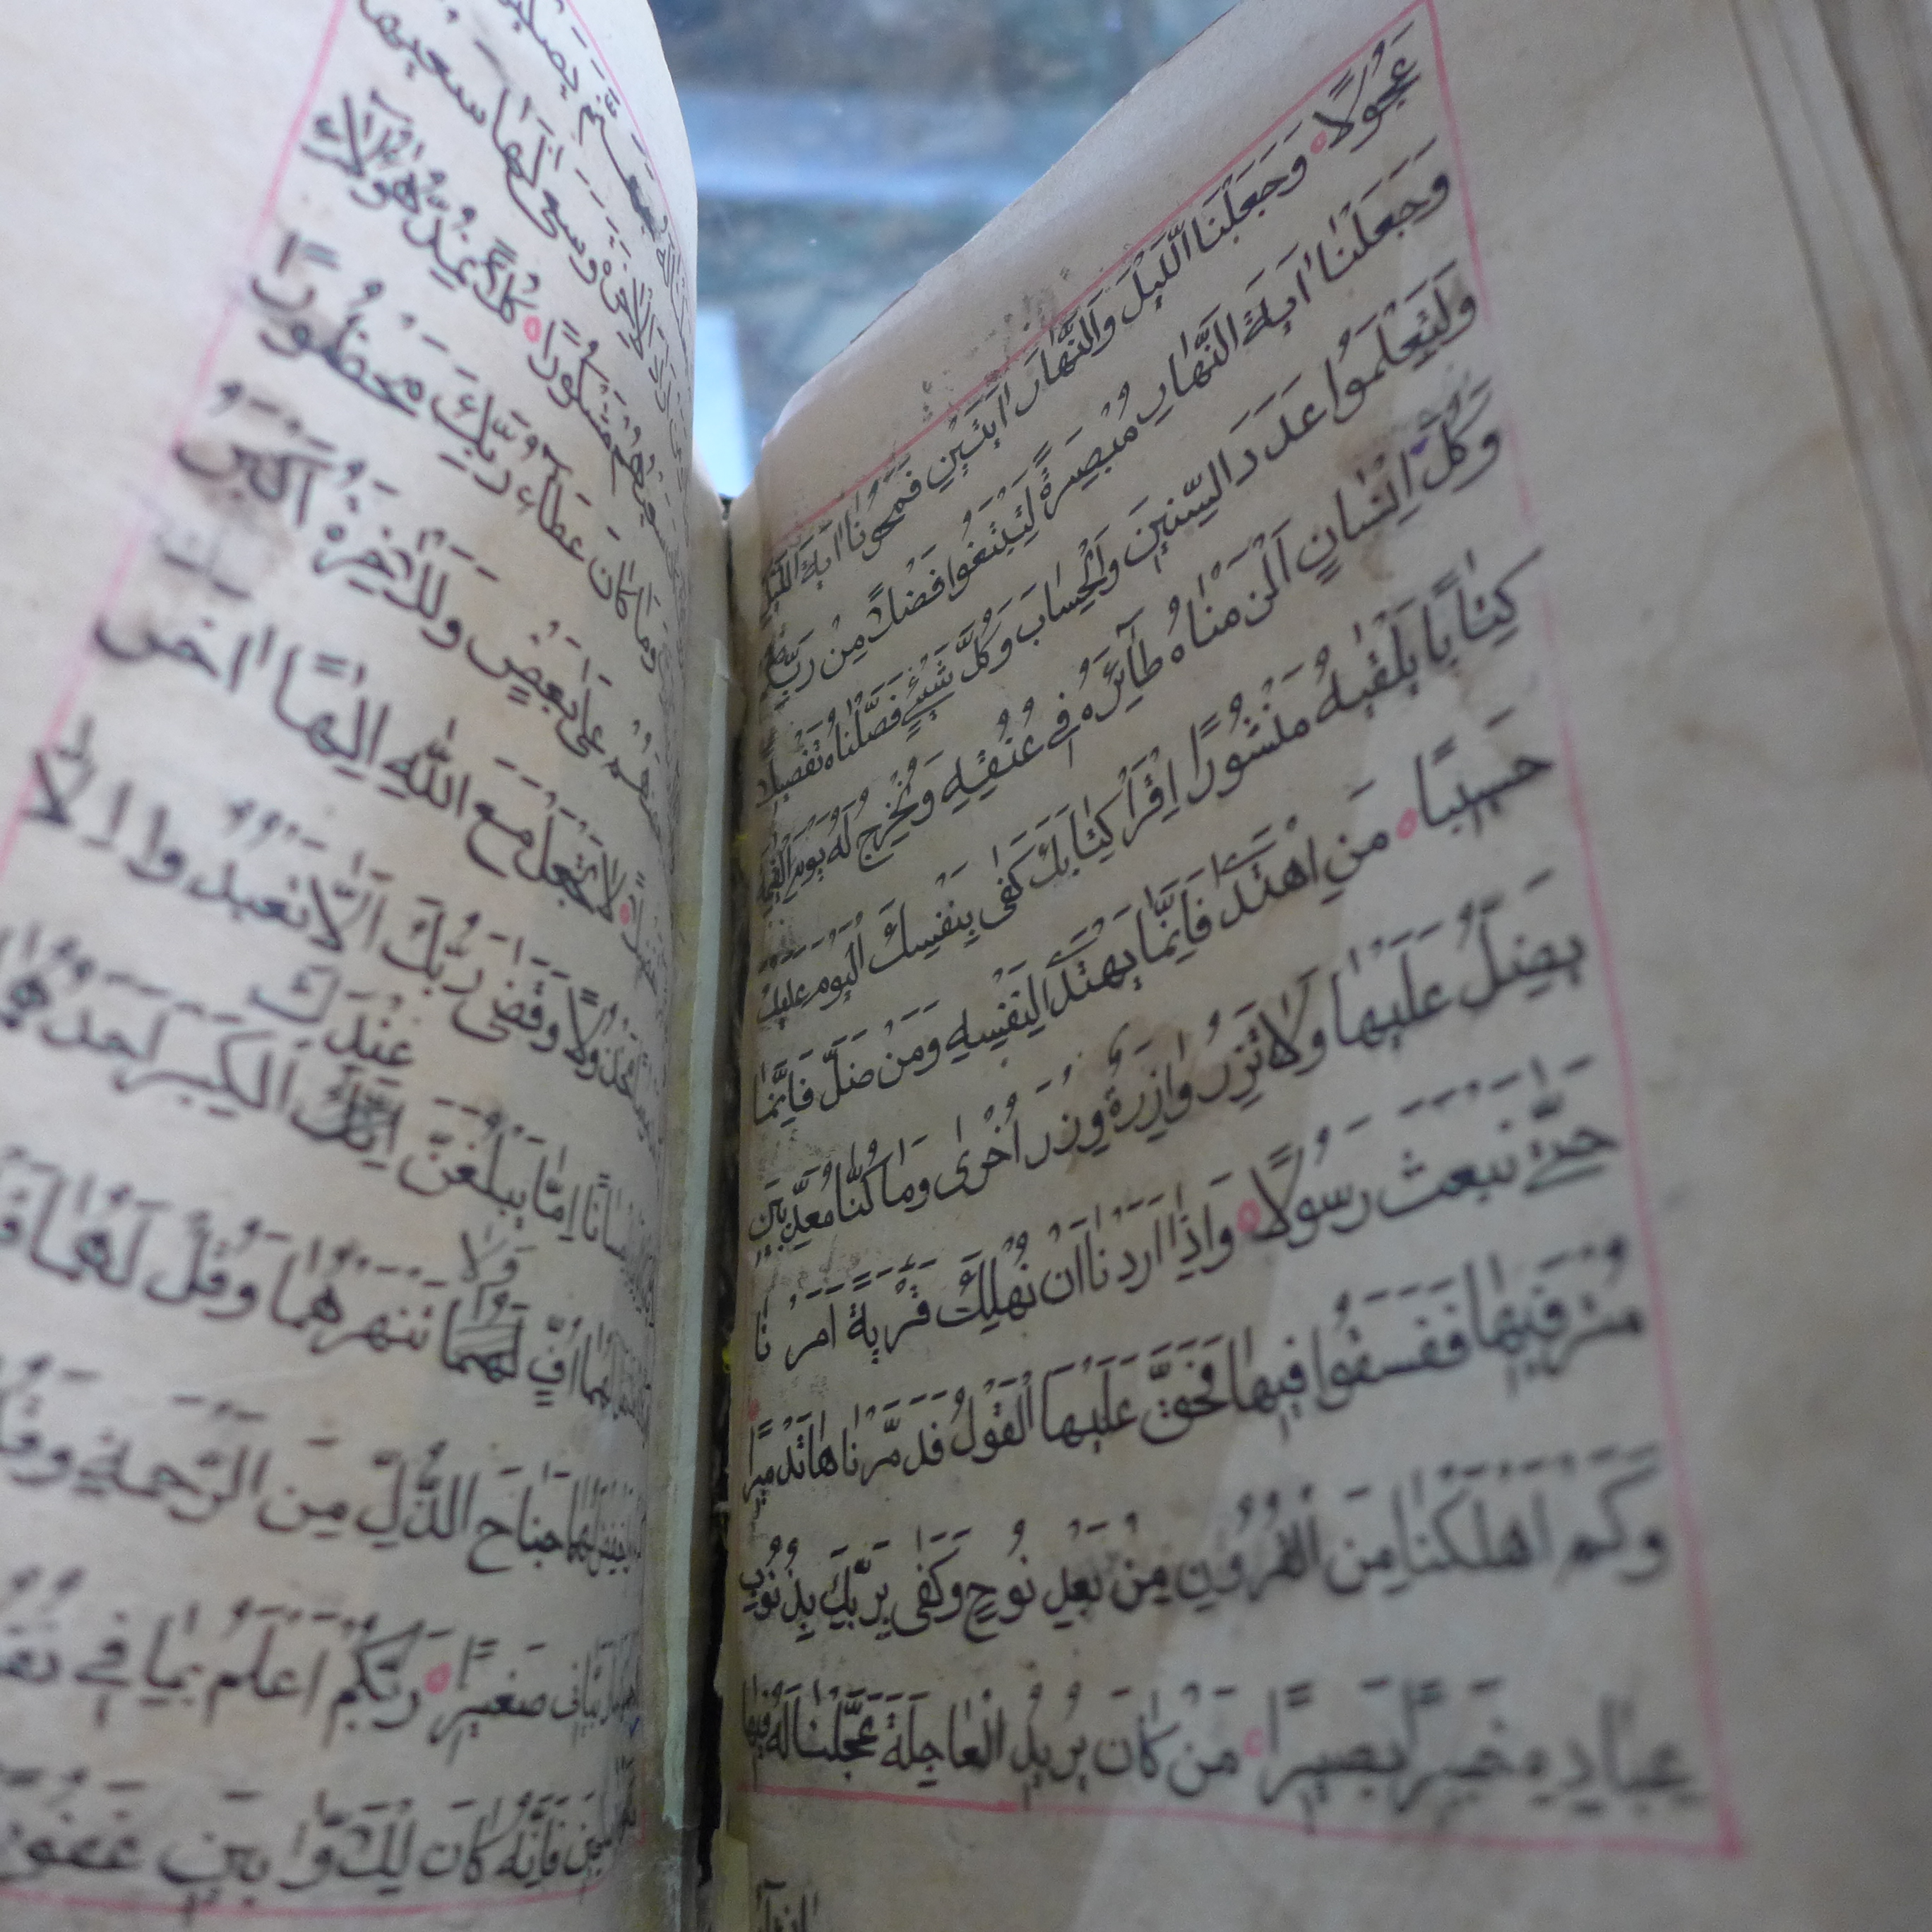 عَجُولًا وَجَعَلْنَا اللَّيْلَ وَالنَّهَارَ اٰيَتَيْنِ فَمَحَوْنَا اٰيَةَ اللَّيْلِ
وَجَعَلْنَا اٰيَةَ النَّهَارِ مُبْصِرَةً لِتَبْتَغُوا فَضْلًا مِنْ رَبِّكُمْ
وَلِتَعْلَمُوا عَدَدَ السِّنِينَ وَالْحِسَابَ وَكُلَّ شَيْءٍ فَصَّلْنَاهُ تَفْصِيلًا
وَكُلَّ اِنْسَانٍ اَلْزَمْنَاهُ طَآئِرَهُ فِي عُنُقِهِ وَنُخْرِجُ لَهُ يَوْمَ الْقِيٰمَةِ
كِتَابًا يَلْقٰيهُ مَنْشُورًا اِقْرَأْ كِتَابَكَ كَفٰى بِنَفْسِكَ الْيَوْمَ عَلَيْكَ
حَسِيبًا مَنِ اهْتَدٰى فَاِنَّمَا يَهْتَدِي لِنَفْسِهِ وَمَنْ ضَلَّ فَاِنَّمَا
يَضِلُّ عَلَيْهَا وَلَا تَزِرُ وَازِرَةٌ وِزْرَ اُخْرٰى وَمَا كُنَّا مُعَذِّبِينَ
حَتّٰى نَبْعَثَ رَسُولًا وَاِذَا اَرَدْنَا اَنْ نُهْلِكَ قَرْيَةً اَمَرْنَا
مُتْرَفِيهَا فَفَسَقُوا فِيهَا فَحَقَّ عَلَيْهَا الْقَوْلُ فَدَمَّرْنَاهَا تَدْمِيرًا
وَكَمْ اَهْلَكْنَا مِنَ الْقُرُونِ مِنْ بَعْدِ نُوحٍ وَكَفٰى بِرَبِّكَ بِذُنُوبِ
عِبَادِهِ خَبِيرًا بَصِيرًا مَنْ كَانَ يُرِيدُ الْعَاجِلَةَ عَجَّلْنَا لَهُ فِيهَا
وَسَعٰى لَهَا سَعْيَهَا
مَشْكُورًا كُلًّا نُمِدُّ هٰؤُلَاءِ
وَمَا كَانَ عَطَآءُ رَبِّكَ مَحْظُورًا
عَلٰى بَعْضٍ وَلَلْاٰخِرَةُ اَكْبَرُ
لَا تَجْعَلْ مَعَ اللّٰهِ اِلٰهًا اٰخَرَ
مَخْذُولًا وَقَضٰى رَبُّكَ اَلَّا تَعْبُدُوا اِلَّا
عِنْدَكَ
اِمَّا يَبْلُغَنَّ الْكِبَرَ اَحَدُهُمَا
وَلَا
اُفٍّ تَنْهَرْهُمَا وَقُلْ لَهُمَا
جَنَاحَ الذُّلِّ مِنَ الرَّحْمَةِ وَقُلْ
صَغِيرًا رَبُّكُمْ اَعْلَمُ بِمَا فِي
فَاِنَّهُ كَانَ لِلْاَوَّابِينَ غَفُورًا